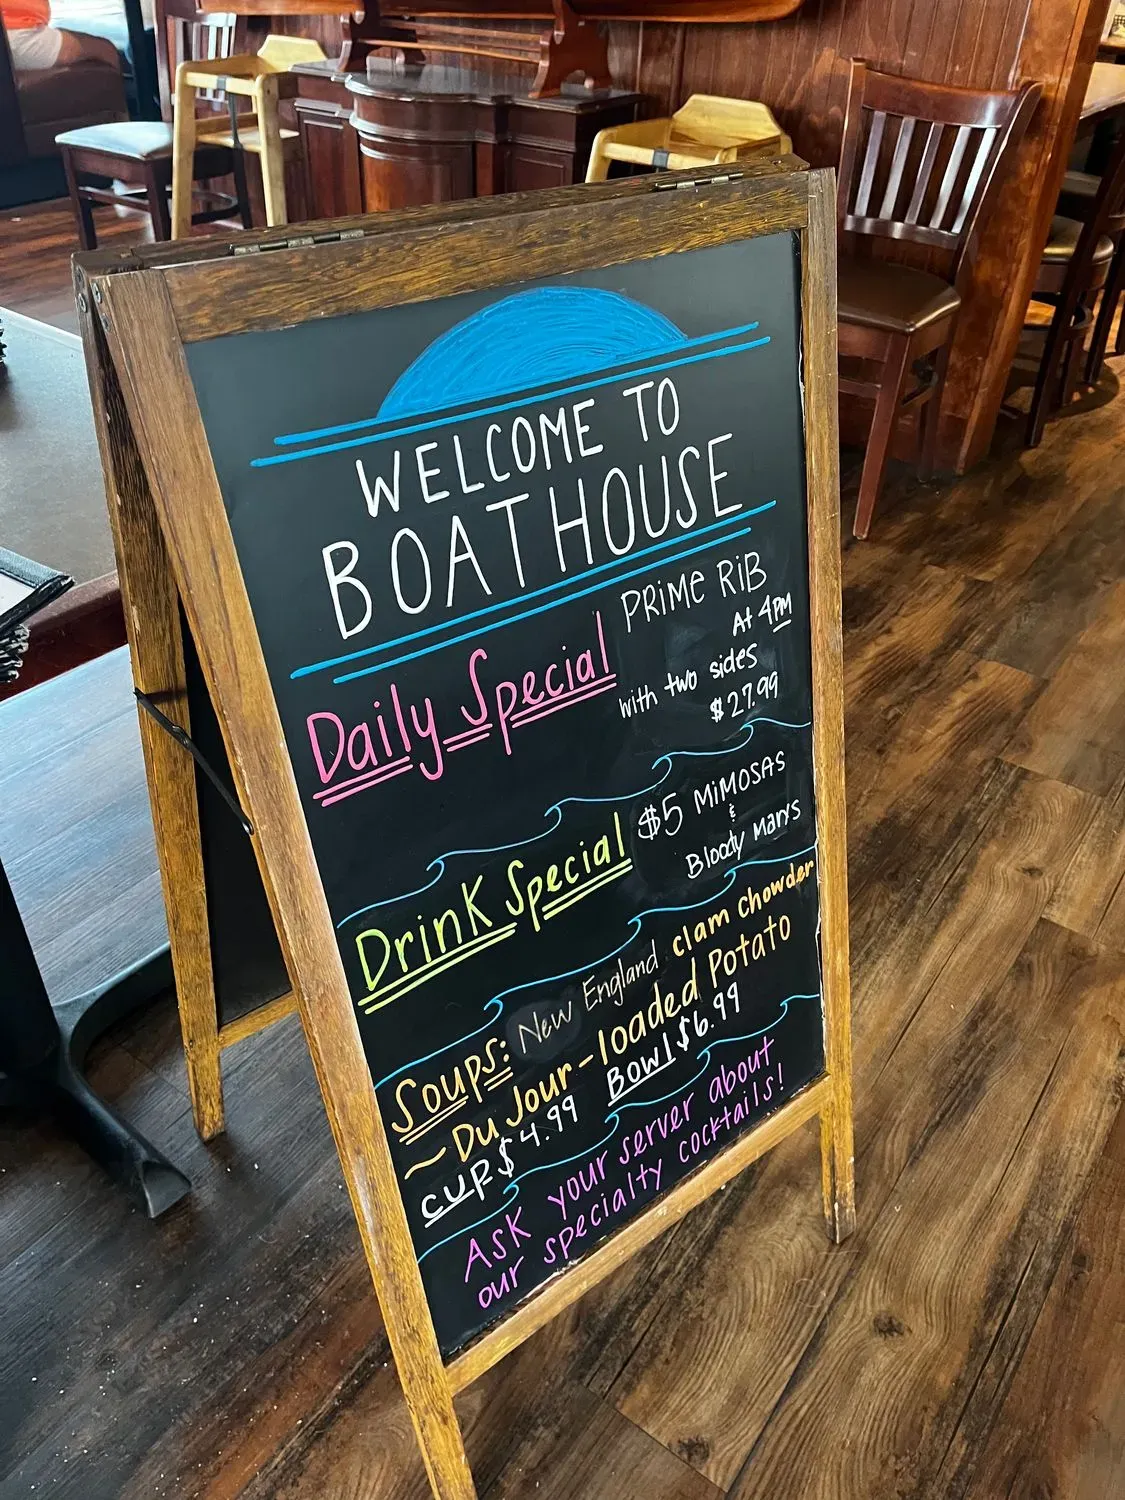 WELCOME TO
BOATHOUSE
Daily Special
PRIME RIB
At 4PM
with two sides
$27.99
Drink Special
$5 MIMOSAS
&
Bloody Marys
Soups: New England clam chowder
~Du Jour-loaded Potato
CUP $4.99 Bowl $6.99
ASK your server about
our specialty cocktails!